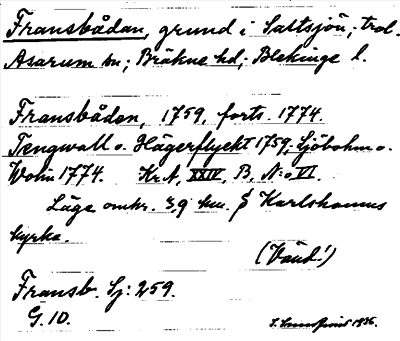 Fransbådan, grund i Saltsjön; trol.
Asarum sn; Bräkne hd; Blekinge l.
Fransbådan, 1759, forts. 1774.
Tengwall o. Hägerflyckt 1759; Sjöbohm o.
Wohn 1774. Kr.A, XXIV, B, N:o VI.
Läge omkr. 3,9 km. S Karlshamns
kyrka.
(Vänd!)
Fransb. Sj: 259.
G. 10.
1936.